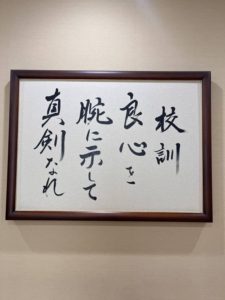 校訓
良心を
腕に示して
真剣なれ